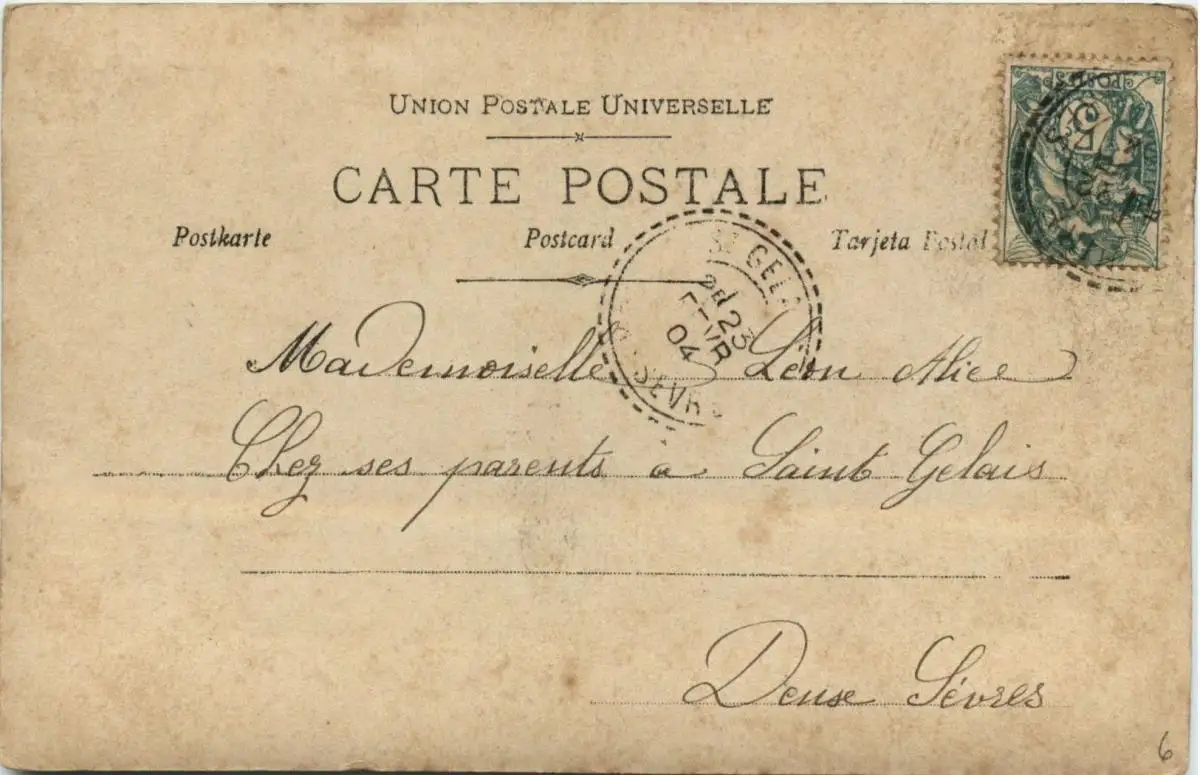 UNION POSTALE UNIVERSELLE
CARTE POSTALE
Postkarte Postcard Tarjeta Postal
ST GELA
2E 23
FEVR
04
SEVR
Mademoiselle Léon Alice
Chez ses parents a Saint Gelais
Deuse Sévres
6